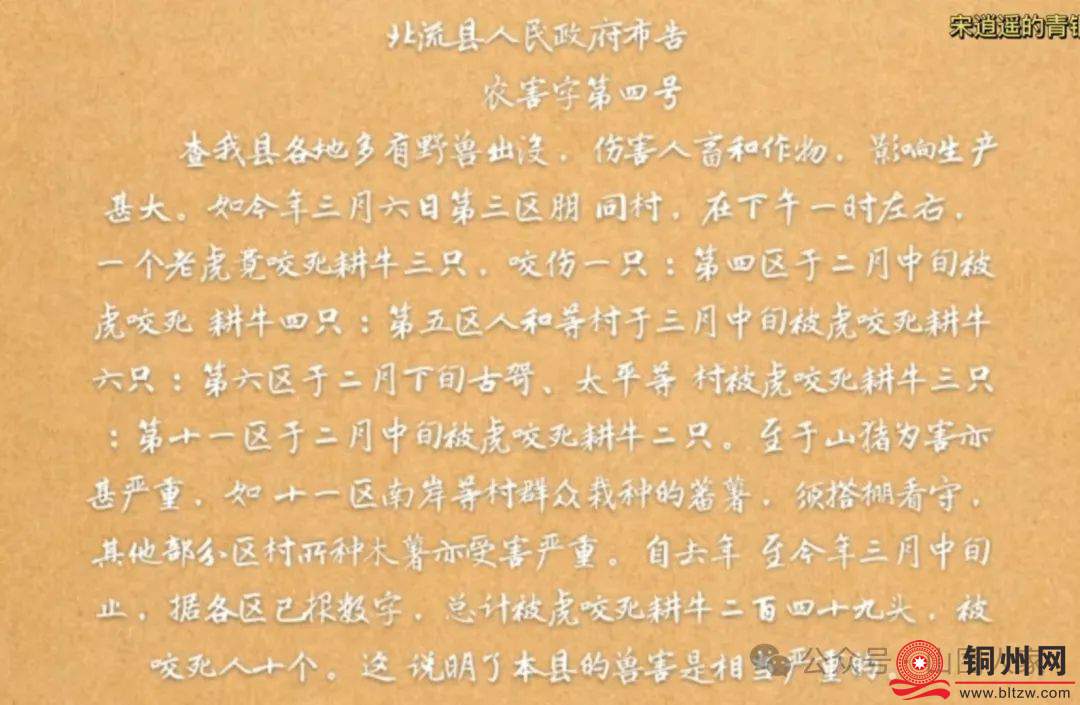 宋逍遥的青
北流县人民政府布告
农害字第四号
查我县各地多有野兽出没，伤害人畜和作物，影响生产
甚大。如今年三月六日第三区朋 同村，在下午一时左右，
一个老虎竟咬死耕牛三只，咬伤一只：第四区于二月中旬被
虎咬死 耕牛四只：第五区人和等村于三月中旬被虎咬死耕牛
六只：第六区于二月下旬古哿、太平等 村被虎咬死耕牛三只
：第十一区于二月中旬被虎咬死耕牛二只。至于山猪为害亦
甚严重，如 十一区南岸等村群众栽种的蕃薯，须搭棚看守，
其他部分区村所种木薯亦受害严重。自去年 至今年三月中旬
止，据各区已报数字，总计被虎咬死耕牛二百四十九头，被
咬死人十个。这 说明了本县的兽害是相当严重的。
公众号
铜州网
www.bltzw.com